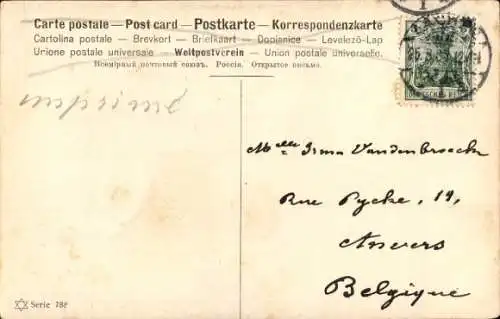 Carte postale — Post card — Postkarte — Korrespondenzkarte
Cartolina postale — Brevkort — Briefkaart — Dopisnice — Levelező-Lap
Unione postale universale — Weltpostverein — Union postale universelle.
Всемірный почтовый союзъ. Россія. Открытое письмо.
imprimé
Melle Irma Vandenbroeck
Rue Pycke, 19,
Anvers
Belgique
Serie 78